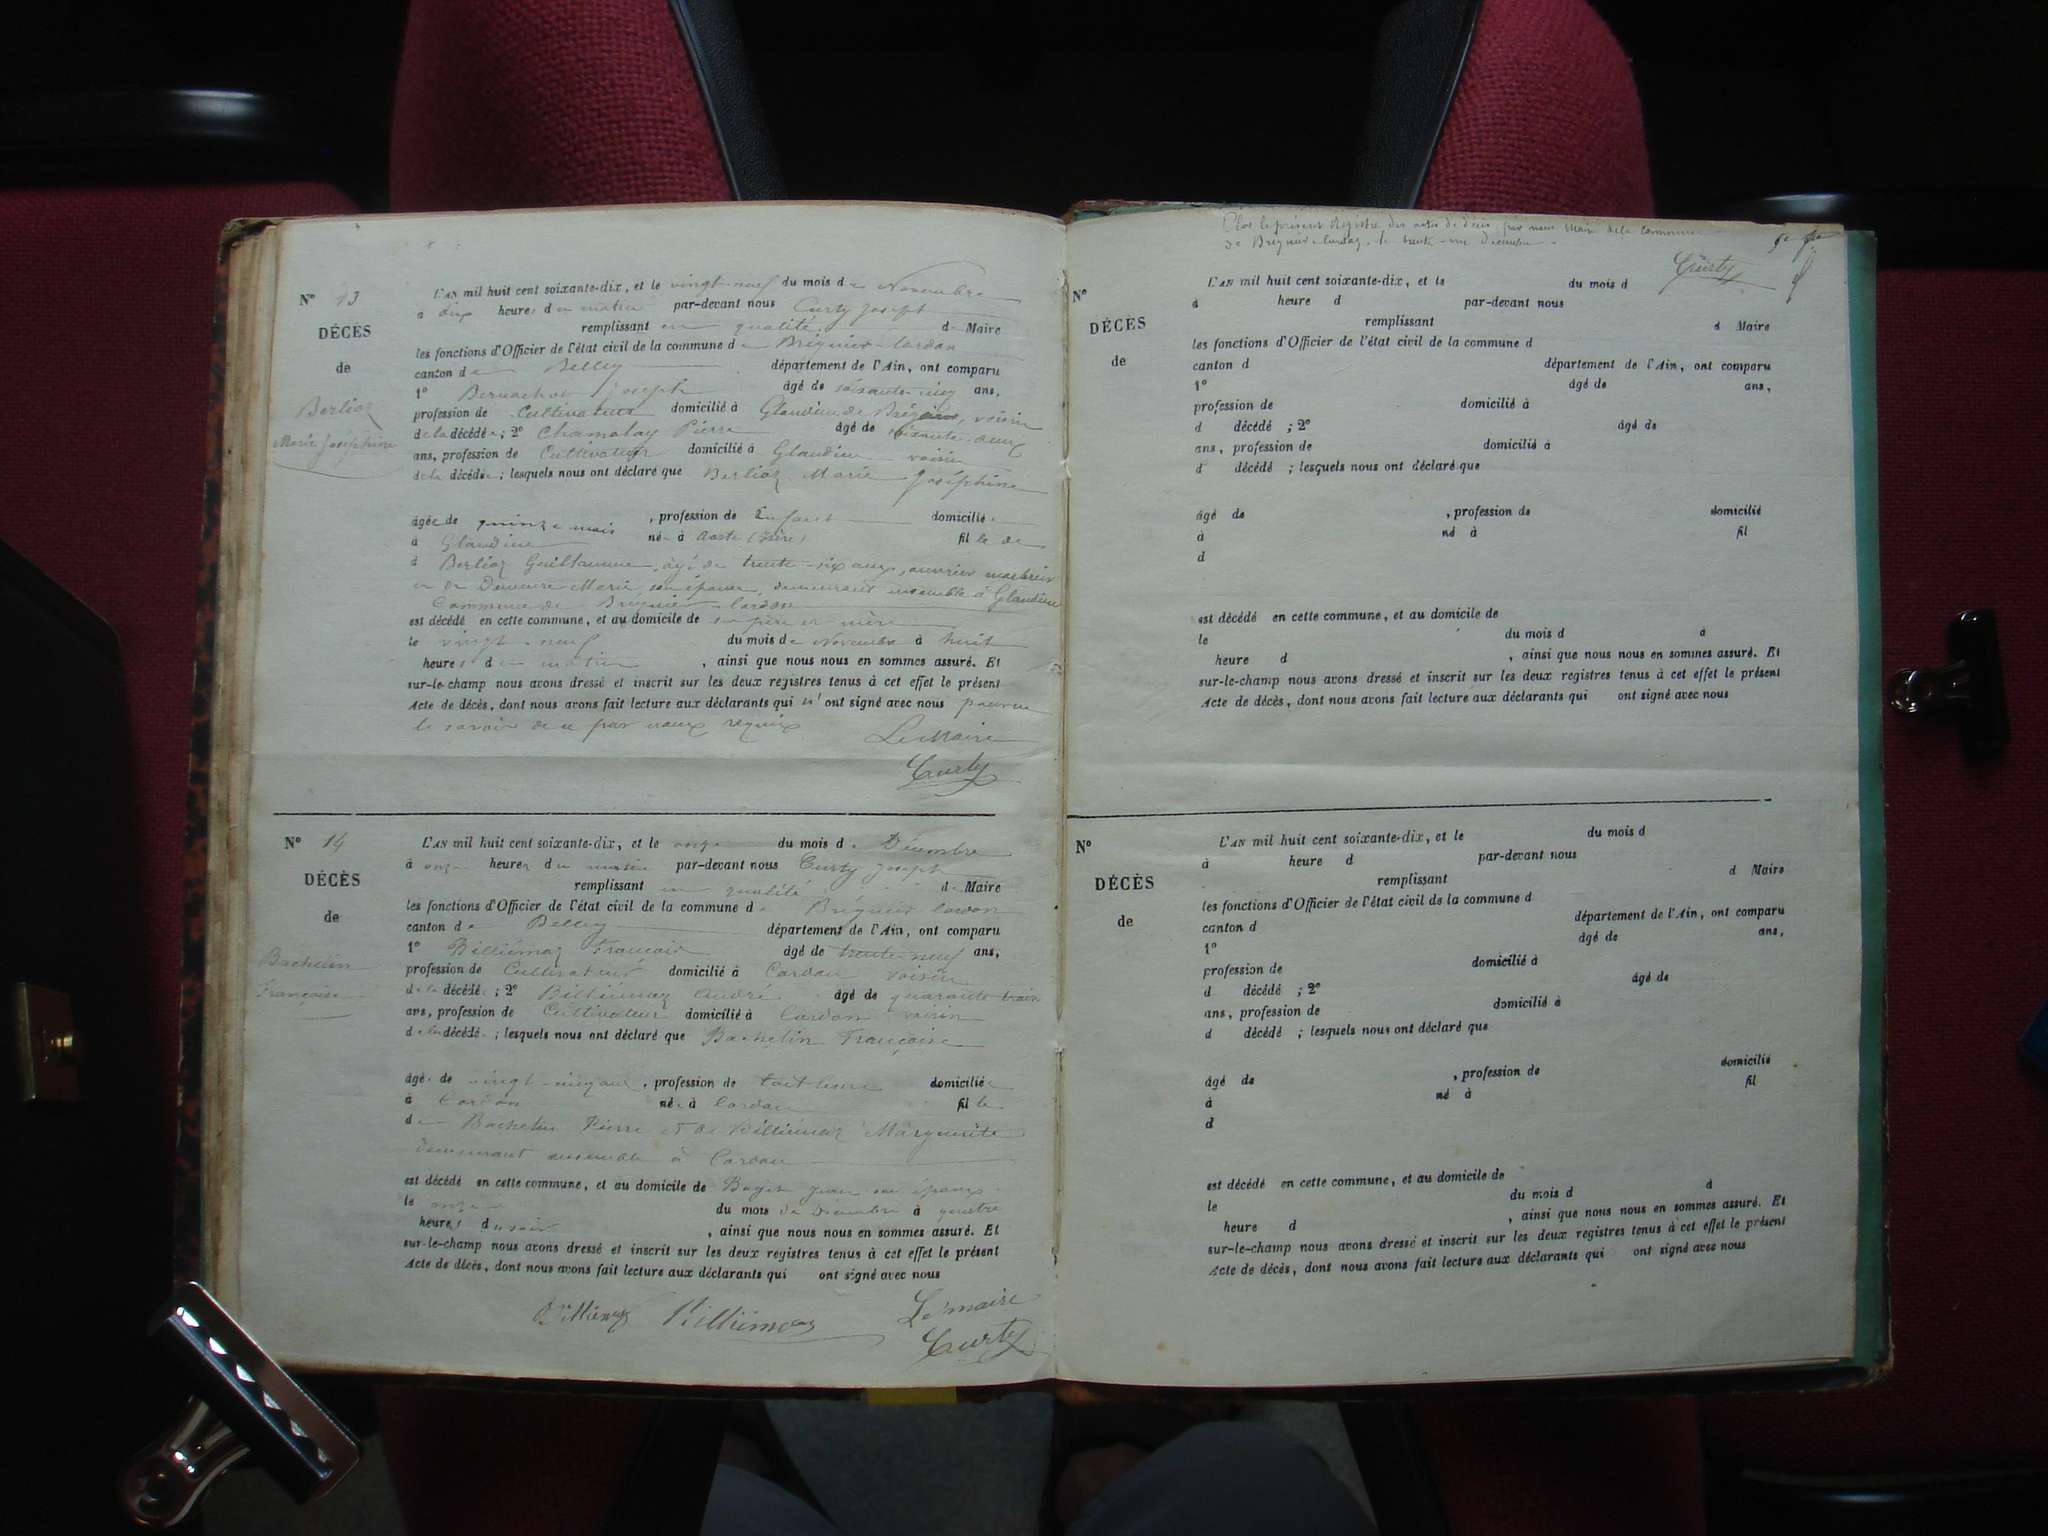 N° 13
DÉCÈS
de
Berlioz
Marie Joséphine
L'AN mil huit cent soixante-dix, et le vingt-neuf du mois de Novembre
à dix heures du matin par-devant nous Curty Joseph
remplissant en qualité de Maire
les fonctions d'Officier de l'état civil de la commune de Brégnier-Cordon
canton de Belley département de l'Ain, ont comparu
1° Joseph âgé de soixante-cinq ans,
profession de Cultivateur domicilié à Glandieu de Brégnier, voisin
de la décédée; 2° Chamolay Pierre âgé de soixante-deux
ans, profession de Cultivateur domicilié à Glandieu voisin
de la décédée; lesquels nous ont déclaré que Berlioz Marie Joséphine
âgée de quinze mois, profession de Enfant domiciliée
à Glandieu née à Aoste (Isère) fille de
d Berlioz Guillaume, âgé de trente-six ans, ouvrier
et de Marie, son épouse, demeurant ensemble à Glandieu
Commune de Brégnier-Cordon
est décédé en cette commune, et au domicile de ses père et mère
le vingt-neuf du mois de Novembre à huit
heures du matin, ainsi que nous nous en sommes assuré. Et
sur-le-champ nous avons dressé et inscrit sur les deux registres tenus à cet effet le présent
Acte de décès, dont nous avons fait lecture aux déclarants qui n'ont signé avec nous pour ne
le savoir de ce par nous requis
Le Maire
Curty
N° 14
DÉCÈS
de
Bachelin
Françoise
L'AN mil huit cent soixante-dix, et le onze du mois de Décembre
à onze heures du matin par-devant nous Curty Joseph
remplissant en qualité de Maire
les fonctions d'Officier de l'état civil de la commune de Brégnier Cordon
canton de Belley département de l'Ain, ont comparu
1° Billiémaz François âgé de trente-neuf ans,
profession de Cultivateur domicilié à Cordon voisin
de la décédée; 2° Billiémaz André âgé de quarante trois
ans, profession de Cultivateur domicilié à Cordon voisin
de la décédée; lesquels nous ont déclaré que Bachelin Françoise
âgée de vingt-cinq ans, profession de domiciliée
à Cordon née à Cordon fille
de Bachelin Pierre et de Billiémaz Marguerite
demeurant ensemble à Cordon
est décédé en cette commune, et au domicile de son époux
le onze du mois de Décembre à quatre
heures du soir, ainsi que nous nous en sommes assuré. Et
sur-le-champ nous avons dressé et inscrit sur les deux registres tenus à cet effet le présent
Acte de décès, dont nous avons fait lecture aux déclarants qui ont signé avec nous
Billiémaz Billiémaz Le maire
Curty
Clos le présent Registre des actes de décès par nous Maire de la Commune
de Brégnier-Cordon, le trente-un Décembre
Curty
N°
DÉCÈS
de
L'AN mil huit cent soixante-dix, et le du mois d
à heure d par-devant nous
remplissant d Maire
les fonctions d'Officier de l'état civil de la commune d
canton d département de l'Ain, ont comparu
1° âgé de ans,
profession de domicilié à
d décédé ; 2° âgé de
ans, profession de domicilié à
d décédé ; lesquels nous ont déclaré que
âgé de , profession de domicilié
à né à fil
d
est décédé en cette commune, et au domicile de
le du mois d à
heure d , ainsi que nous nous en sommes assuré. Et
sur-le-champ nous avons dressé et inscrit sur les deux registres tenus à cet effet le présent
Acte de décès, dont nous avons fait lecture aux déclarants qui ont signé avec nous
N°
DÉCÈS
de
L'AN mil huit cent soixante-dix, et le du mois d
à heure d par-devant nous
remplissant d Maire
les fonctions d'Officier de l'état civil de la commune d
canton d département de l'Ain, ont comparu
1° âgé de ans,
profession de domicilié à
d décédé ; 2° âgé de
ans, profession de domicilié à
d décédé ; lesquels nous ont déclaré que
âgé de , profession de domicilié
à né à fil
d
est décédé en cette commune, et au domicile de
le du mois d à
heure d , ainsi que nous nous en sommes assuré. Et
sur-le-champ nous avons dressé et inscrit sur les deux registres tenus à cet effet le présent
Acte de décès, dont nous avons fait lecture aux déclarants qui ont signé avec nous